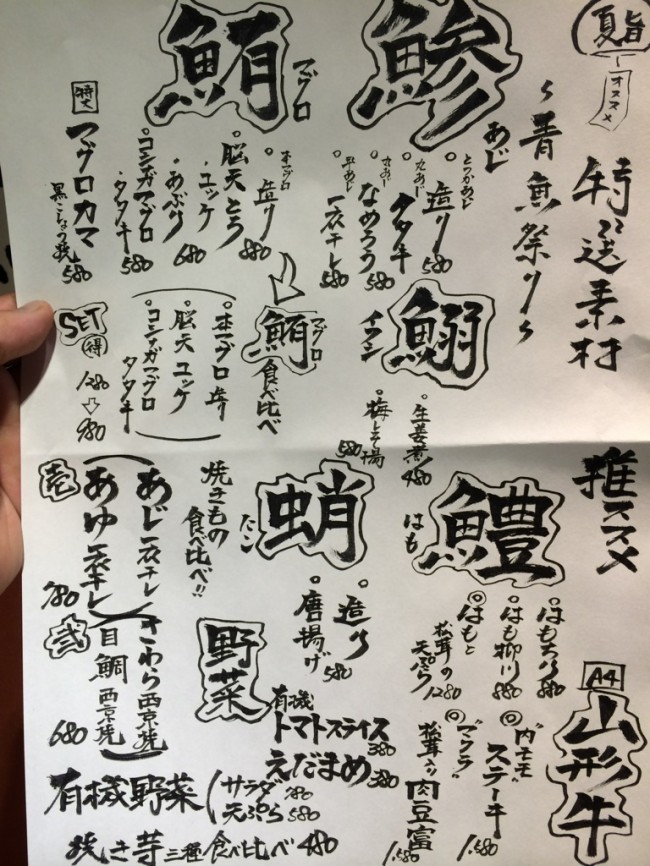 夏旨
オススメ
特選素材
〜青魚祭り〜
鯵
あじ
とつかあじ
造り 580
丸あじ
タタキ 580
丸あじ
なめろう 580
平あじ
一夜干し 580
鮪
マグロ
本マグロ
造り 880
脳天とろ
・ユッケ
・あぶり 680
コシナガマグロ
・タタキ 580
特大
マグロカマ
黒こしょう焼 580
鮪 マグロ
食べ比べ
本マグロ 造り
脳天 ユッケ
コシナガマグロ
タタキ
SET
得
1280
⇩
980
鰯
イワシ
生姜煮 480
梅しそ揚 580
推ススメ
鱧
はも
はも天ぷら 880
はも柳川 880
◎はもと
松茸の
天ぷら 1280
蛸
たこ
造り
唐揚げ 580
焼きもの
食べ比べ!!
壱
あじ 一夜干し
あゆ 一夜干し
780
弐
さわら 西京焼
目鯛 西京焼
680
A4
山形牛
内モモ
ステーキ 1.580
◎
松茸入り
肉豆富 1.580
野菜
有機
トマトスライス 380
えだまめ 380
有機野菜
サラダ 780
天ぷら 580
焼き芋 三種食べ比べ 480